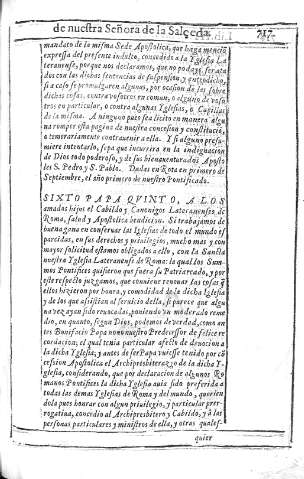 de nuestra Señora de la Salceda. 717.
mandato de la misma Sede Apostolica, que haga mencio
expressa del presente indulto, concedido a la Yglesia La
teranense, por que nos declaramos, que no podays ser ata
dos con las dichas sentencias de suspension, y entredicho,
si a caso se promulgaren algunas, por ocasion de las sobre
dichas cosas, contra vosotros en comun, o alguno de voso
tros en particular, o contra algunas Yglesias, o Capillas
de la mesma. A ninguno pues sea licito en manera algu
na romper esta pagina de nuestra concession y constitució,
o temerariamente contravenir a ella. Y si alguno presu
miere intentarlo, sepa que incurrira en la indignacion
de Dios todo poderoso, y de sus bienaventurados Aposto
les S. Pedro y S. Pablo. Dadas en Rota en primero de
Septiembre, el año primero de nuestro Pontificado.
SIXTO PAPA QVINTO, A LOS
amados hijos el Cabildo y Canonigos Lateranenses, de
Roma, salud y Apostolica bendicion. Si trabajamos de
buena gana en conservar las Yglesias de todo el mundo es
parcidas, en sus derechos y privilegios, mucho mas y con
mayor solicitud estamos obligados a ello, con la Sancta
nuestra Yglesia Lateranense de Roma: la qual los Sum
mos Pontifices quisieron que fuera su Patriarcado, y por
este respecto juzgamos, que conviene renovar las cosas q̃
ellos hizieron por honra, y comodidad de la dicha Yglesia
y de los que assistian al servicio della, si parece que algu
na vez ayan sido revocadas, poniendo un moderado reme
dio, en quanto, segun Dios, podemos de verdad, como an
tes Bonifacio Papa nono nuestro Predecessor de felice re
cordacion; el qual tenia particular afecto de devocion a
la dicha Yglesia; y antes de ser Papa uviesse tenido por có
cession Apostolica el Archipresbiterazgo de la dicha Y-
glesia, considerando, que por declaracion de algunos Ro
manos Pontifices la dicha Yglesia avia sido preferida a
todas las demas Yglesias de Roma y del mundo, querien
dola pues honrar con algun privilegio, y particular prer-
rogativa, concedio al Archipresbitero y Cabildo, y à las
personas particulares y ministros de ella, y otras quales-
quier